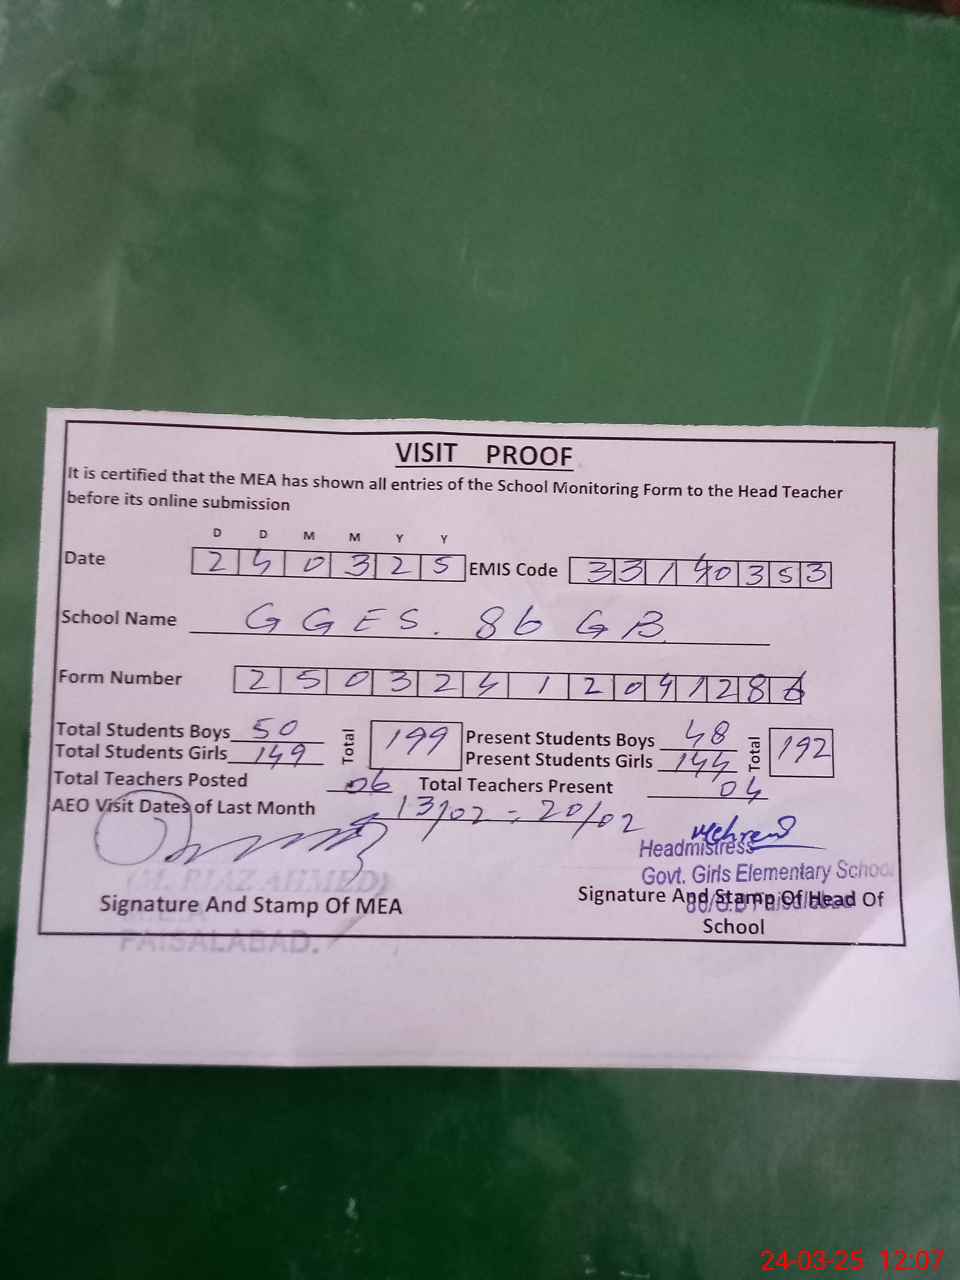 VISIT PROOF
It is certified that the MEA has shown all entries of the School Monitoring Form to the Head Teacher
before its online submission
D D M M Y Y
Date 2 4 0 3 2 5 EMIS Code 3 3 1 4 0 3 5 3
School Name GGES. 86 GB
Form Number 2 5 0 3 2 4 1 2 0 9 1 2 8 6
Total Students Boys 50 Total 199 Present Students Boys 48 Total 192
Total Students Girls 149 Present Students Girls 144
Total Teachers Posted 06 Total Teachers Present 04
AEO Visit Dates of Last Month 13/02 - 20/02
Headmistress
Govt. Girls Elementary School
(M. RIAZ AHMED)
Signature And Stamp Of MEA
Signature And Stamp Of Head Of
School
FAISALABAD.
24-03-25 12:07